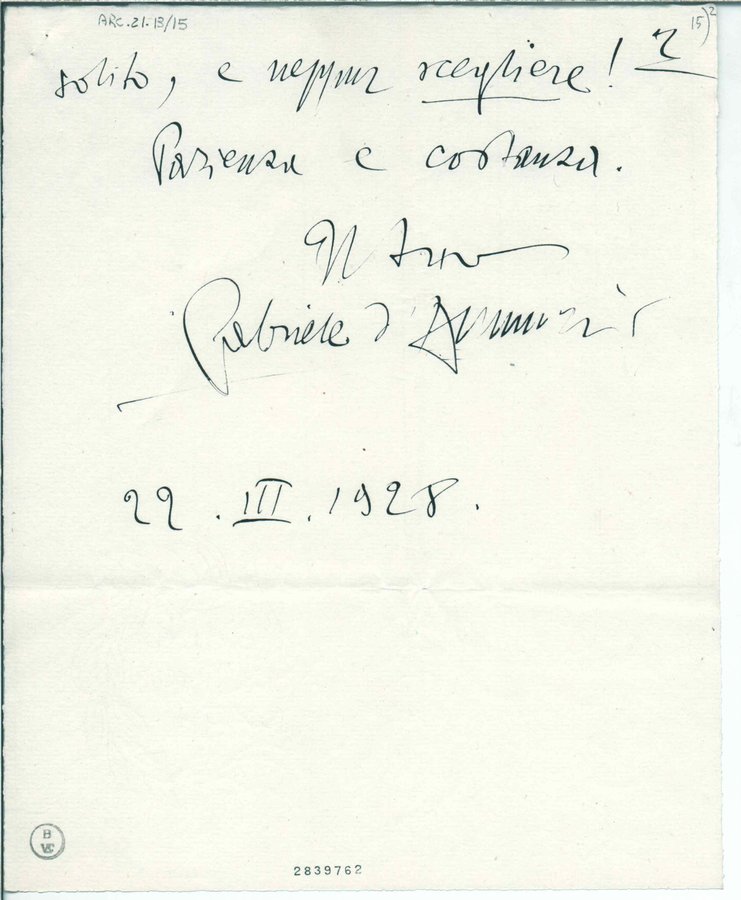 ARC.21.13/15
15)2
2
solito, e neppur scegliere!
Pazienza e costanza.
Il suo
Gabriele d'Annunzio
22.III.1928.
B
VE
2839762